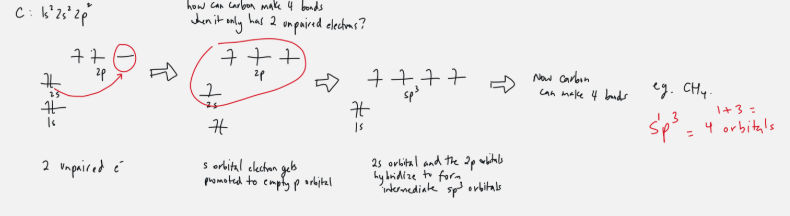 C: 1s² 2s² 2p²
how can carbon make 4 bonds
when it only has 2 unpaired electrons?
2p
2s
1s
2p
2s
sp³
1s
Now carbon
can make 4 bonds
eg. CH₄.
1+3=
s¹p³ = 4 orbitals
2 unpaired e⁻
s orbital electron gets
promoted to empty p orbital
2s orbital and the 2p orbitals
hybridize to form
intermediate sp³ orbitals